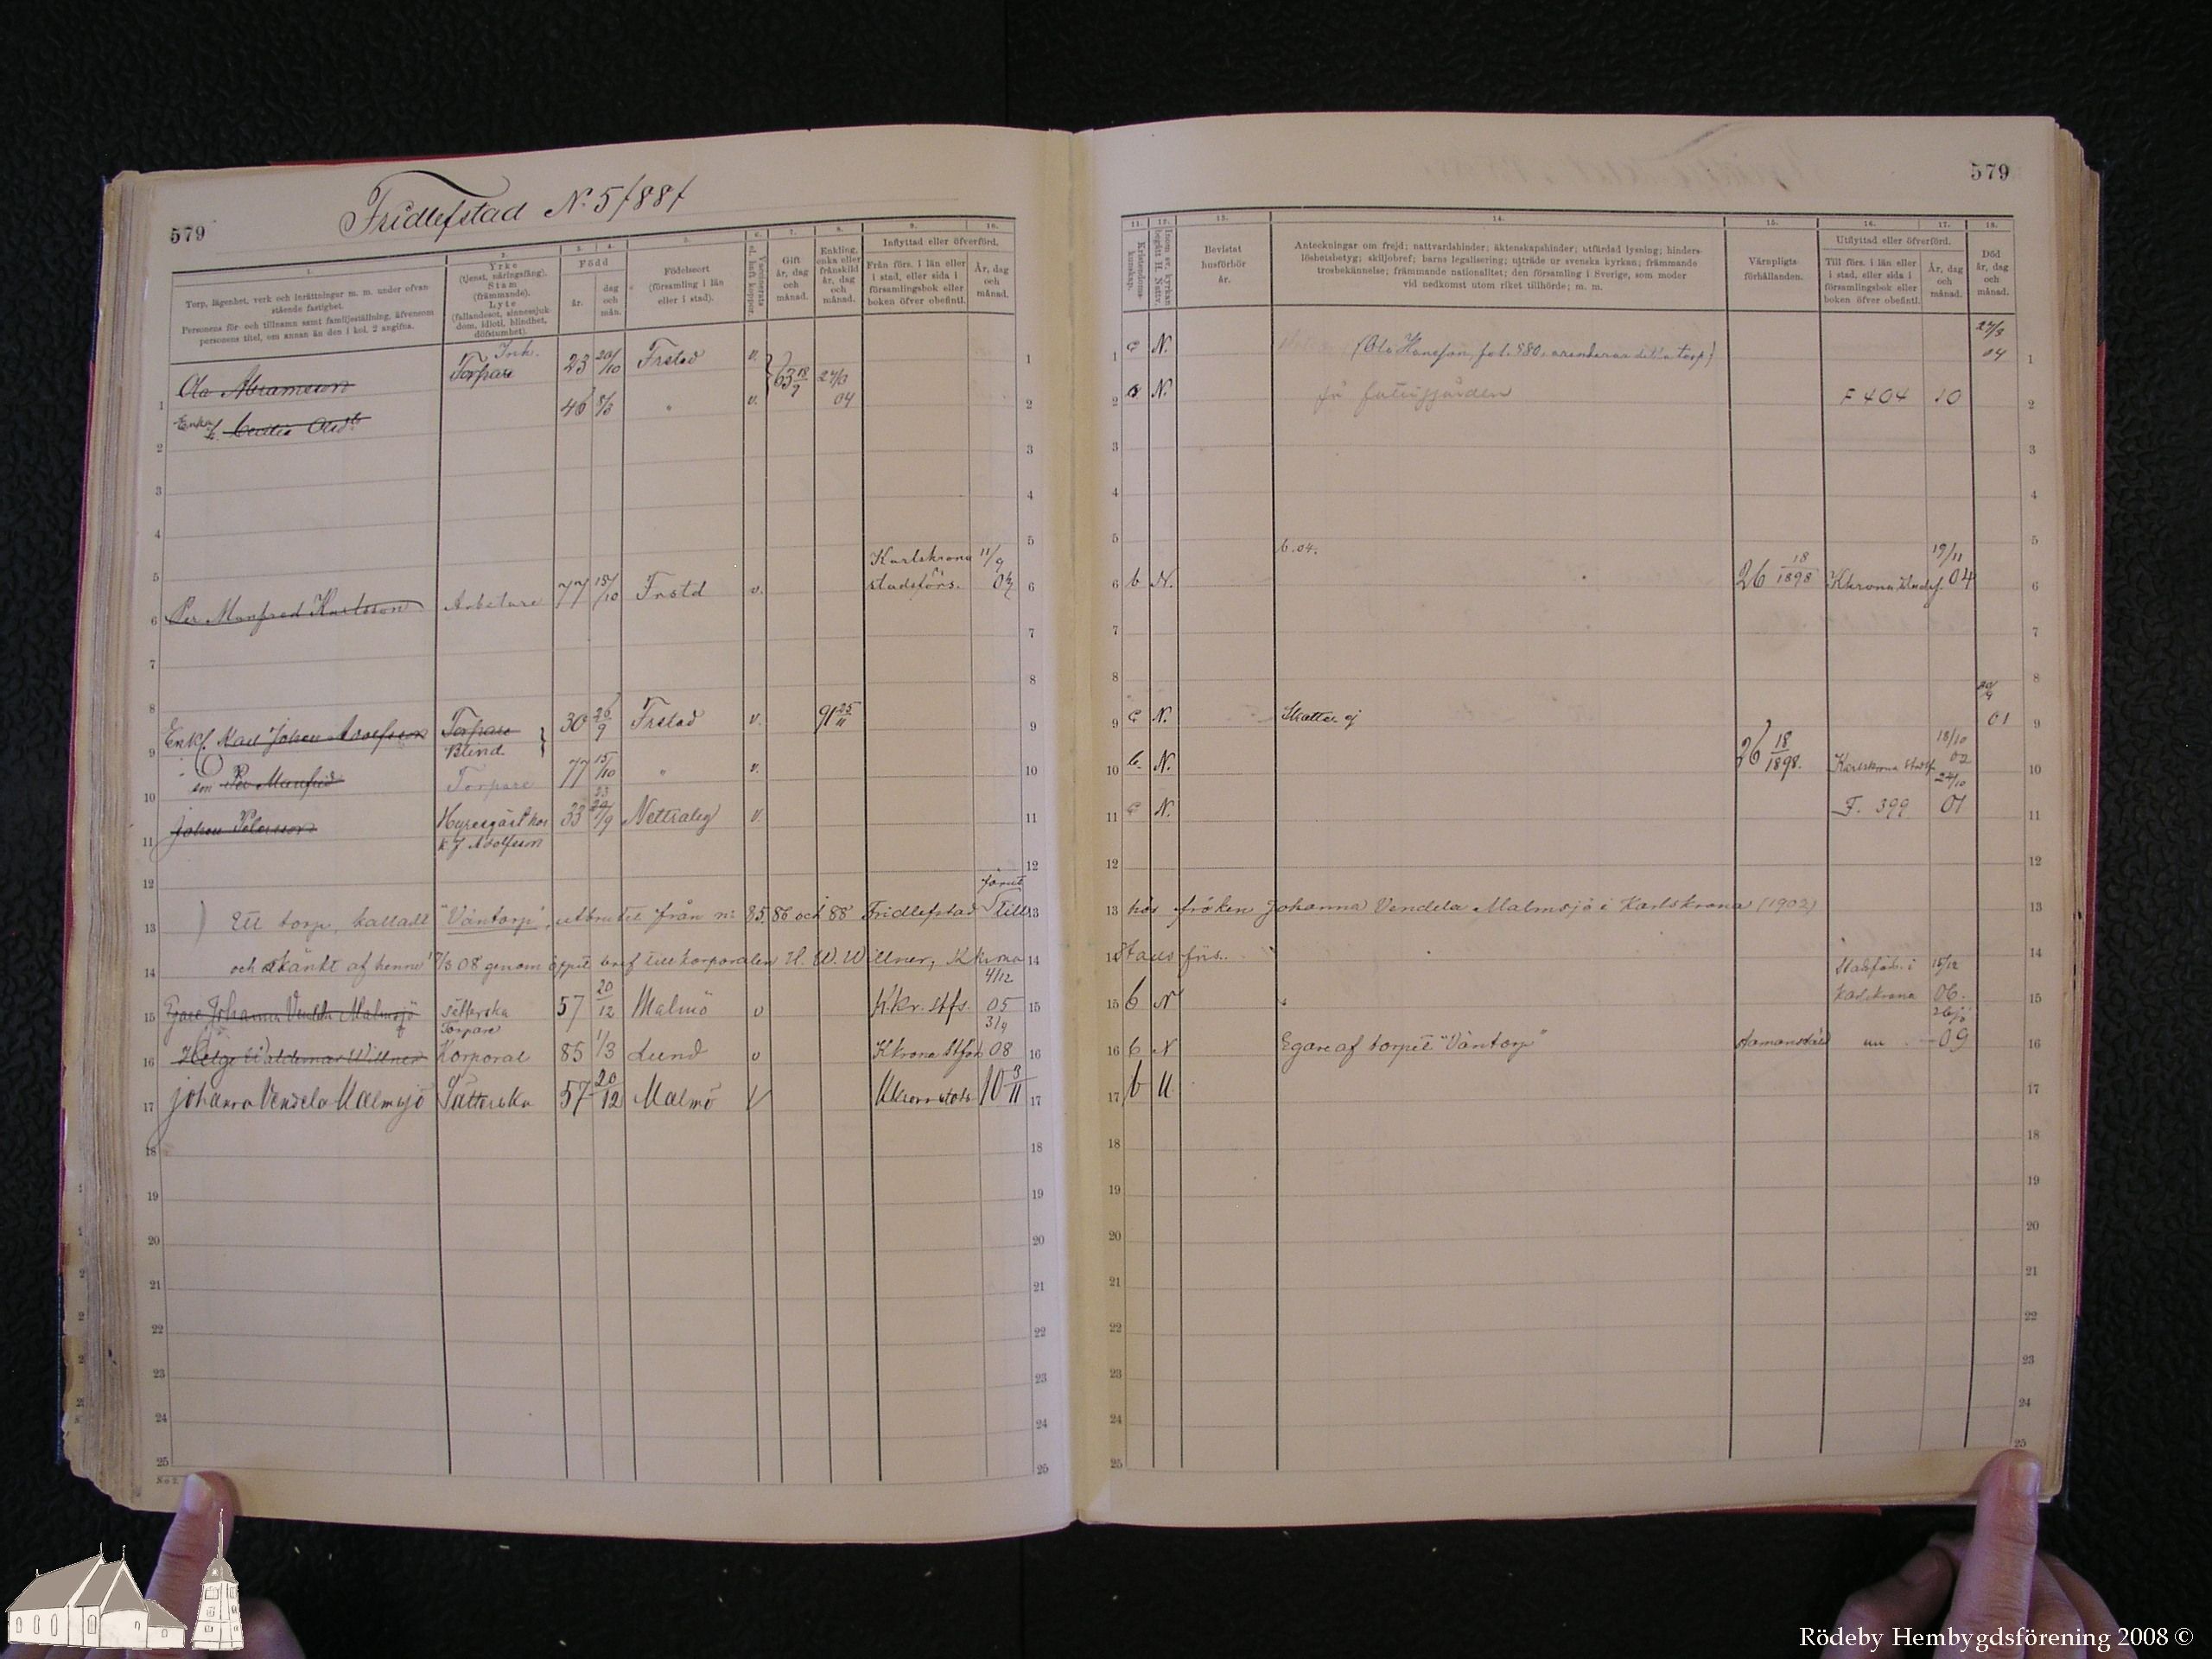 579
Fridlefstad No 5/88/
1.
Torp, lägenhet, verk och inrättningar m. m. under ofvan-
stående fastighet.
Personens för- och tillnamn samt familjeställning, äfvensom
personens titel, om annan än den i kol. 2 angifna.
2.
Yrke
(tjenst, näringsfång).
Stam
(främmande).
Lyte
(fallandesot, sinnessjuk-
dom, idioti, blindhet,
döfstumhet).
3. 4.
Född
år.
dag
och
mån.
5.
Födelseort
(församling i län
eller i stad).
6.
Vaccinerats
el. haft koppor.
7.
Gift
år, dag
och
månad.
8.
Enkling,
enka eller
frånskild
år, dag
och
månad.
9. 10.
Inflyttad eller öfverförd.
Från förs. i län eller
i stad, eller sida i
församlingsbok eller
boken öfver obefintl.
År, dag
och
månad.
1 Ola Abramsson Torpare 23 20/10 Frstad v. 63 18/9 27/3 04 1
2 Enka Cecilia Olsdr 46 8/3 " v. 2
3 3
4 4
5 5
6 Per Manfred Karlsson Arbetare 77 15/10 Frstd v. Karlskrona stadsförs. 11/9 6
7 7
8 8
9 Enkl. Karl Johan Adolfsson Torpare Blind 30 26/9 Frstad v. 91 25/11 9
10 Per Manfred Torpare 77 15/10 " v. 10
11 Johan Peterson Hyresgäst hos K J. Adolfsson 33 Nettraby v. 11
12 12
13 Ett torp, kalladt "Väntorp", utbrutet från nr 85, 86 och 88 Fridlefstad Till 13
14 och skänkt af henne 7/3 08 genom öppet bref till korporalen H. W. Willner, Kkrona 14
15 Johanna Vendela Malmsjö Sätterska 57 20/12 Malmö v K.kr. stfs. 4/12 05 15
16 Helge Valdemar Willner Torpare Korporal 85 1/3 Lund v Kkrona Stfs 31/9 08 16
17 Johanna Vendela Malmsjö Sätterska 57 20/12 Malmö v Kkrona stads 10 3/11 17
18 18
19 19
20 20
21 21
22 22
23 23
24 24
25 25
No 2.
579
11.
Kristendoms-
kunskap.
12.
Inom sv. kyrkan
begått H. Nattv.
13.
Bevistat
husförhör
år.
14.
Anteckningar om frejd; nattvardshinder; äktenskapshinder; utfärdad lysning; hinders-
löshetsbetyg; skiljobref; barns legalisering; utträde ur svenska kyrkan; främmande
trosbekännelse; främmande nationalitet; den församling i Sverige, som moder
vid nedkomst utom riket tillhörde; m. m.
15.
Värnpligts
förhållanden.
16. 17.
Utflyttad eller öfverförd.
Till förs. i län eller
i stad, eller sida i
församlingsbok eller
boken öfver obefintl.
År, dag
och
månad.
18.
Död
år, dag
och
månad.
1 N. (Ola Hansson, fol. 580, arrenderar detta torp) 27/3 04 1
2 N. på fattiggården F 404 10 2
3 3
4 4
5 5
6 b N. b. 04. 26 18/1898 Kkrona stadsf. 19/11 04 6
7 7
8 8
9 N. Skattar ej 01 9
10 b. N. 26 18/1898. Karlskrona stadsf. 18/10 02 10
11 N. F. 399 24/10 01 11
12 12
13 hos fröken Johanna Vendela Malmsjö i Karlskrona (1902) 13
14 14
15 b N Stadsförs. i Karlskrona 15/12 06. 15
16 b N Egare af torpet "Väntorp" 09 16
17 b U. 17
18 18
19 19
20 20
21 21
22 22
23 23
24 24
25 25
Rödeby Hembygdsförening 2008 ©